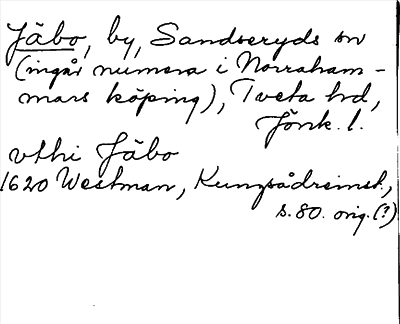 Jäbo, by, Sandseryds sn
(ingår numera i Norraham-
mars köping), Tveta hd,
Jönk. l.
vthi Jäbo
1620 Westman, Kungsådreinst.,
s. 80. orig. (?)